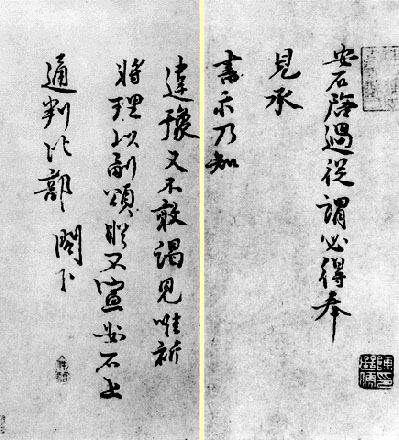 安石啓過從謂必得奉
見承
書示乃知
違豫又不敢謁見唯祈
將理以副頌不宣安石上
通判比部閣下